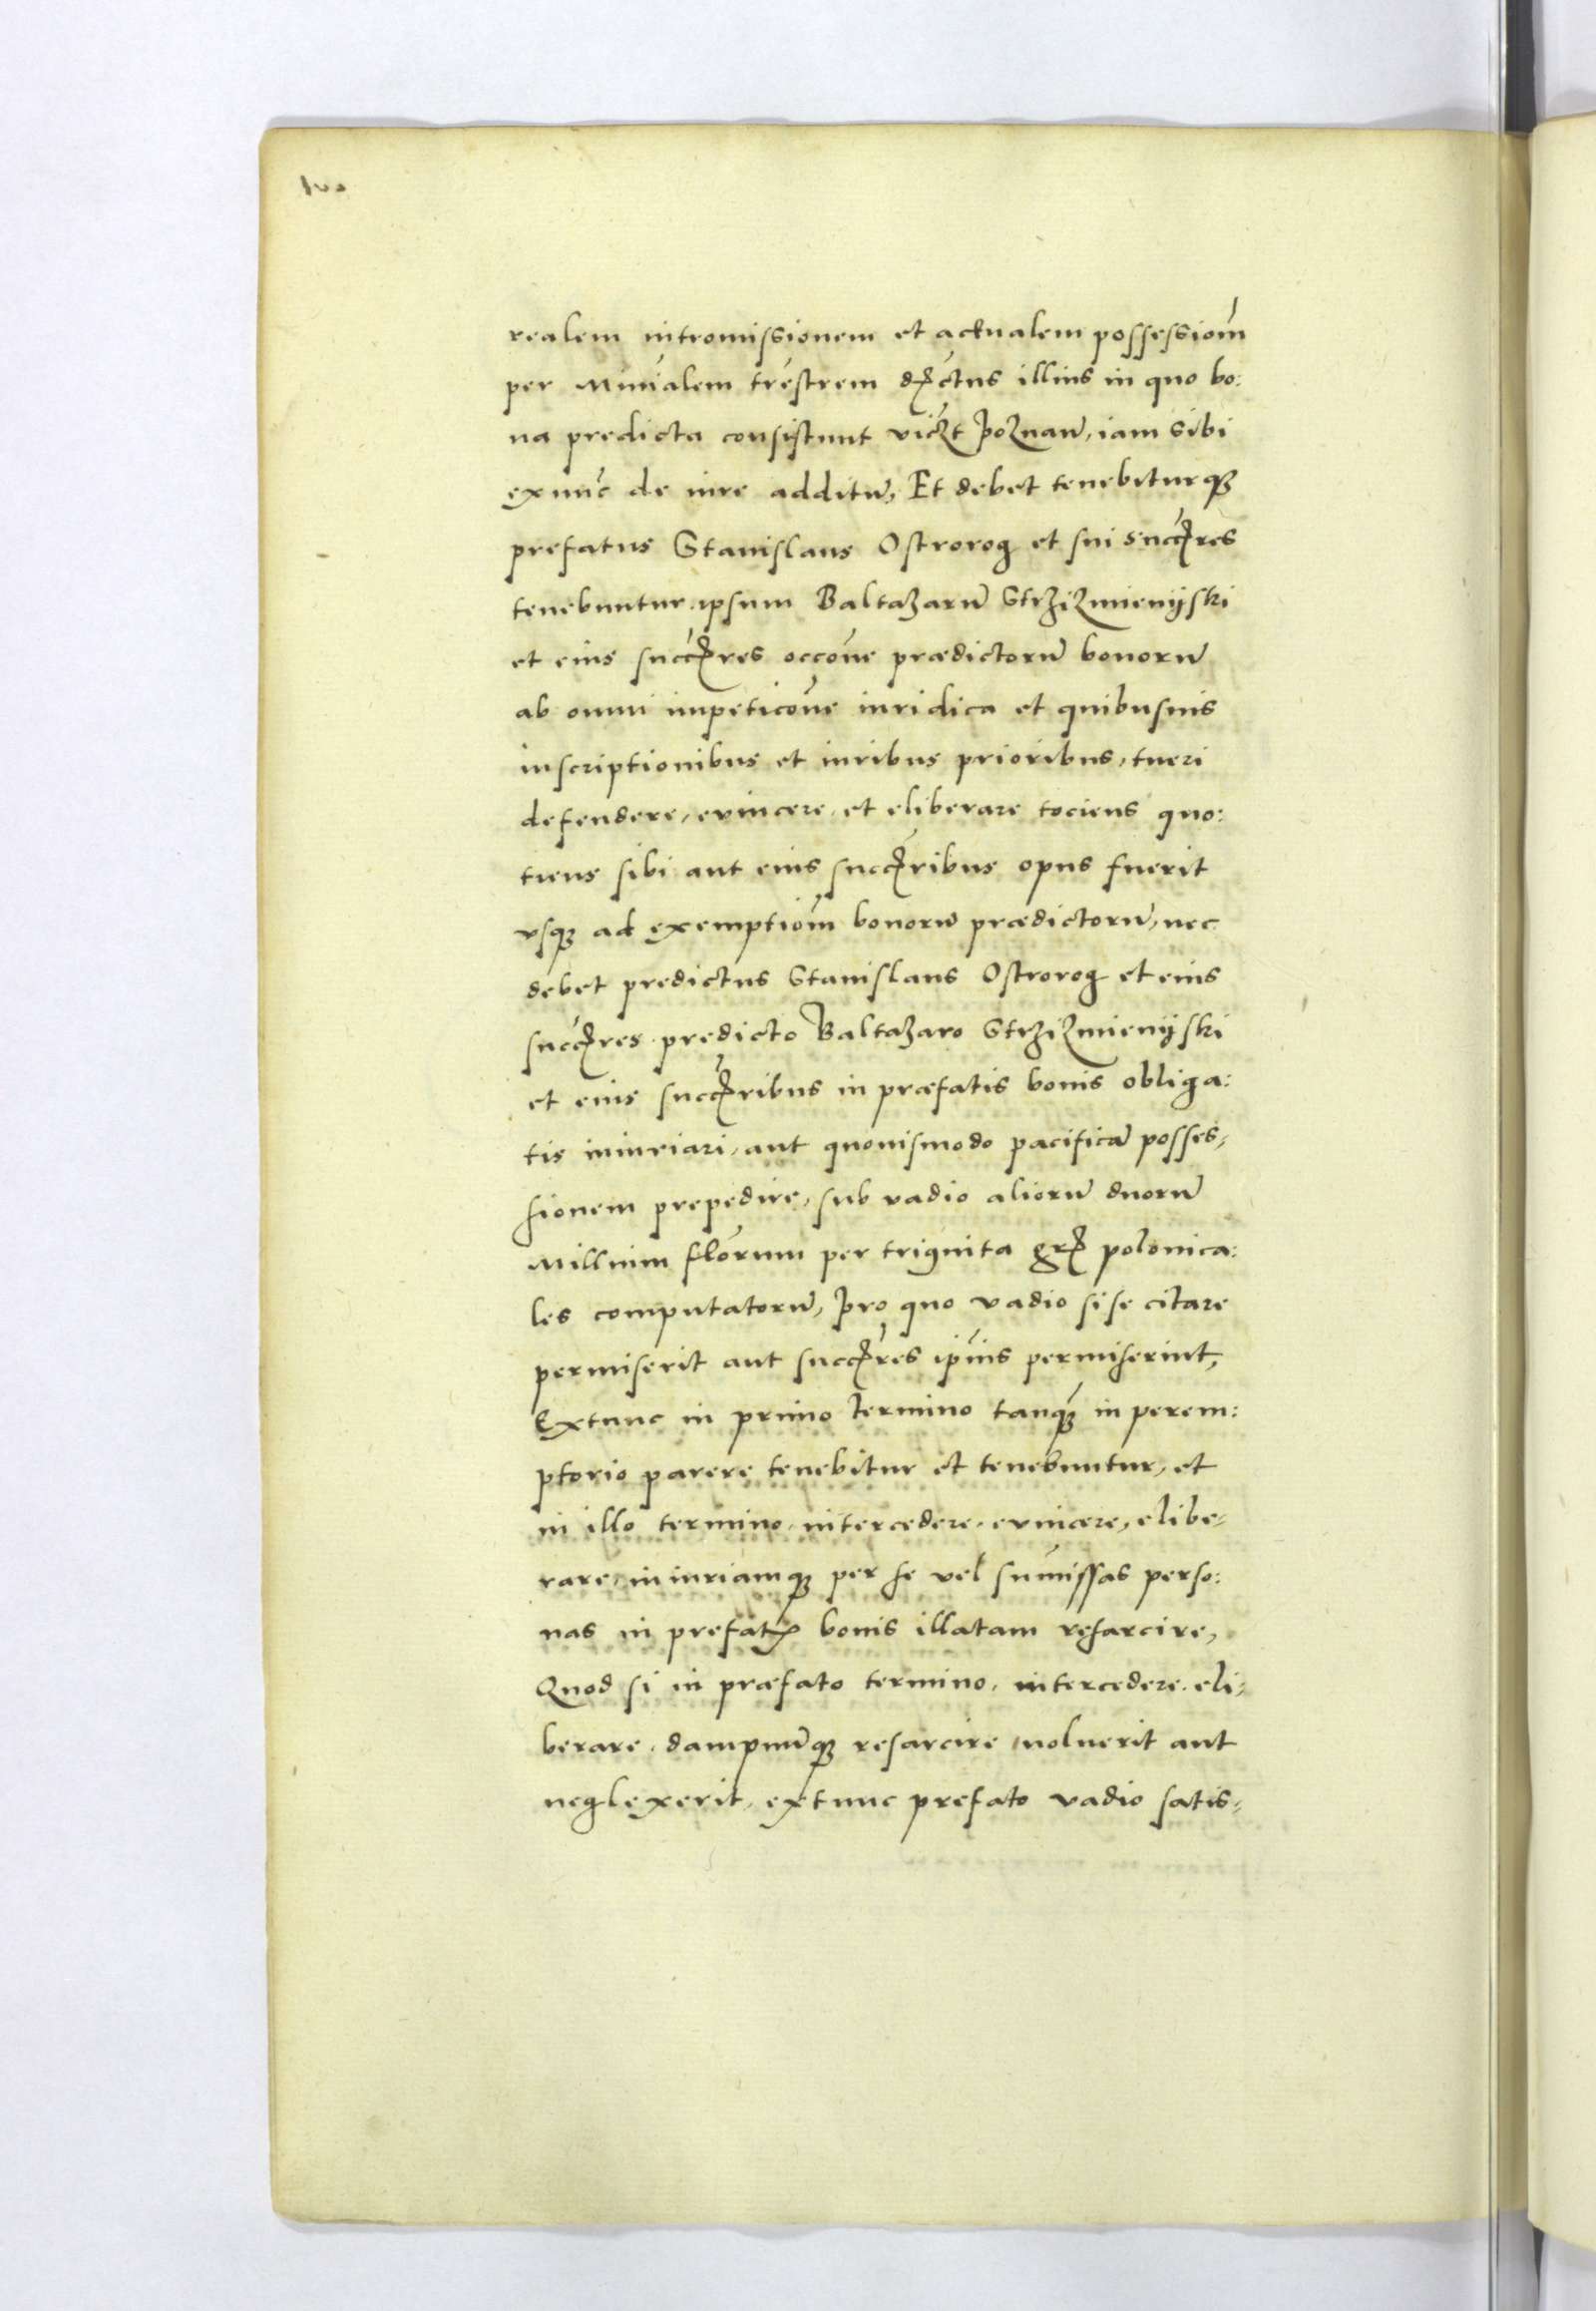 realem intromissionem et actualem possessiom̄
per Mīnīalem tr̄estrem dꝭctus illius in quo bo:
na predicta consistunt vicꝫt Poznan̄, iam sibi
exnūc de iure additū, Et debet tenebiturqꝫ
prefatus Stanislaus Ostrorog et sui succꝭres
tenebuntur ipsum Baltazarū Strzizmienijski
et eius succꝭres occōne prædictorū bonorū
ab omni impeticōne iuridica et quibusuis
inscriptionibus et iuribus prioribus, tueri
defendere, evincere, et eliberare tociens quo:
tiens sibi aut eius succꝭribus opus fuerit
vsqꝫ ad exemptiom̄ bonorū prædictorū, nec
debet predictus Stanislaus Ostrorog et eius
succꝭres predicto Baltazaro Strzizmienijski
et eius succꝭribus in præfatis bonis obliga:
tis iniuriari, aut quouismodo pacificā posses,
sionem prepedire, sub vadio aliorū duorū
Millium flōrum per triginta grꝭ polonica:
les computatorū, Pro quo vadio si se citare
permiserit aut succꝭres ip̄ius permiserint,
Extunc in primo termino tanqꝫ in perem:
ptorio parere tenebitur et tenebuntur, et
in illo termino, intercedere, evincere, elibe,
rare, iniuriamqꝫ per se vel sum̄issas perso:
nas in prefatꝭ bonis illatam resarcire,
Quod si in præfato termino, intercedere, eli,
berare, dampnūqꝫ resarcire noluerit aut
neglexerit, extunc prefato vadio satis,